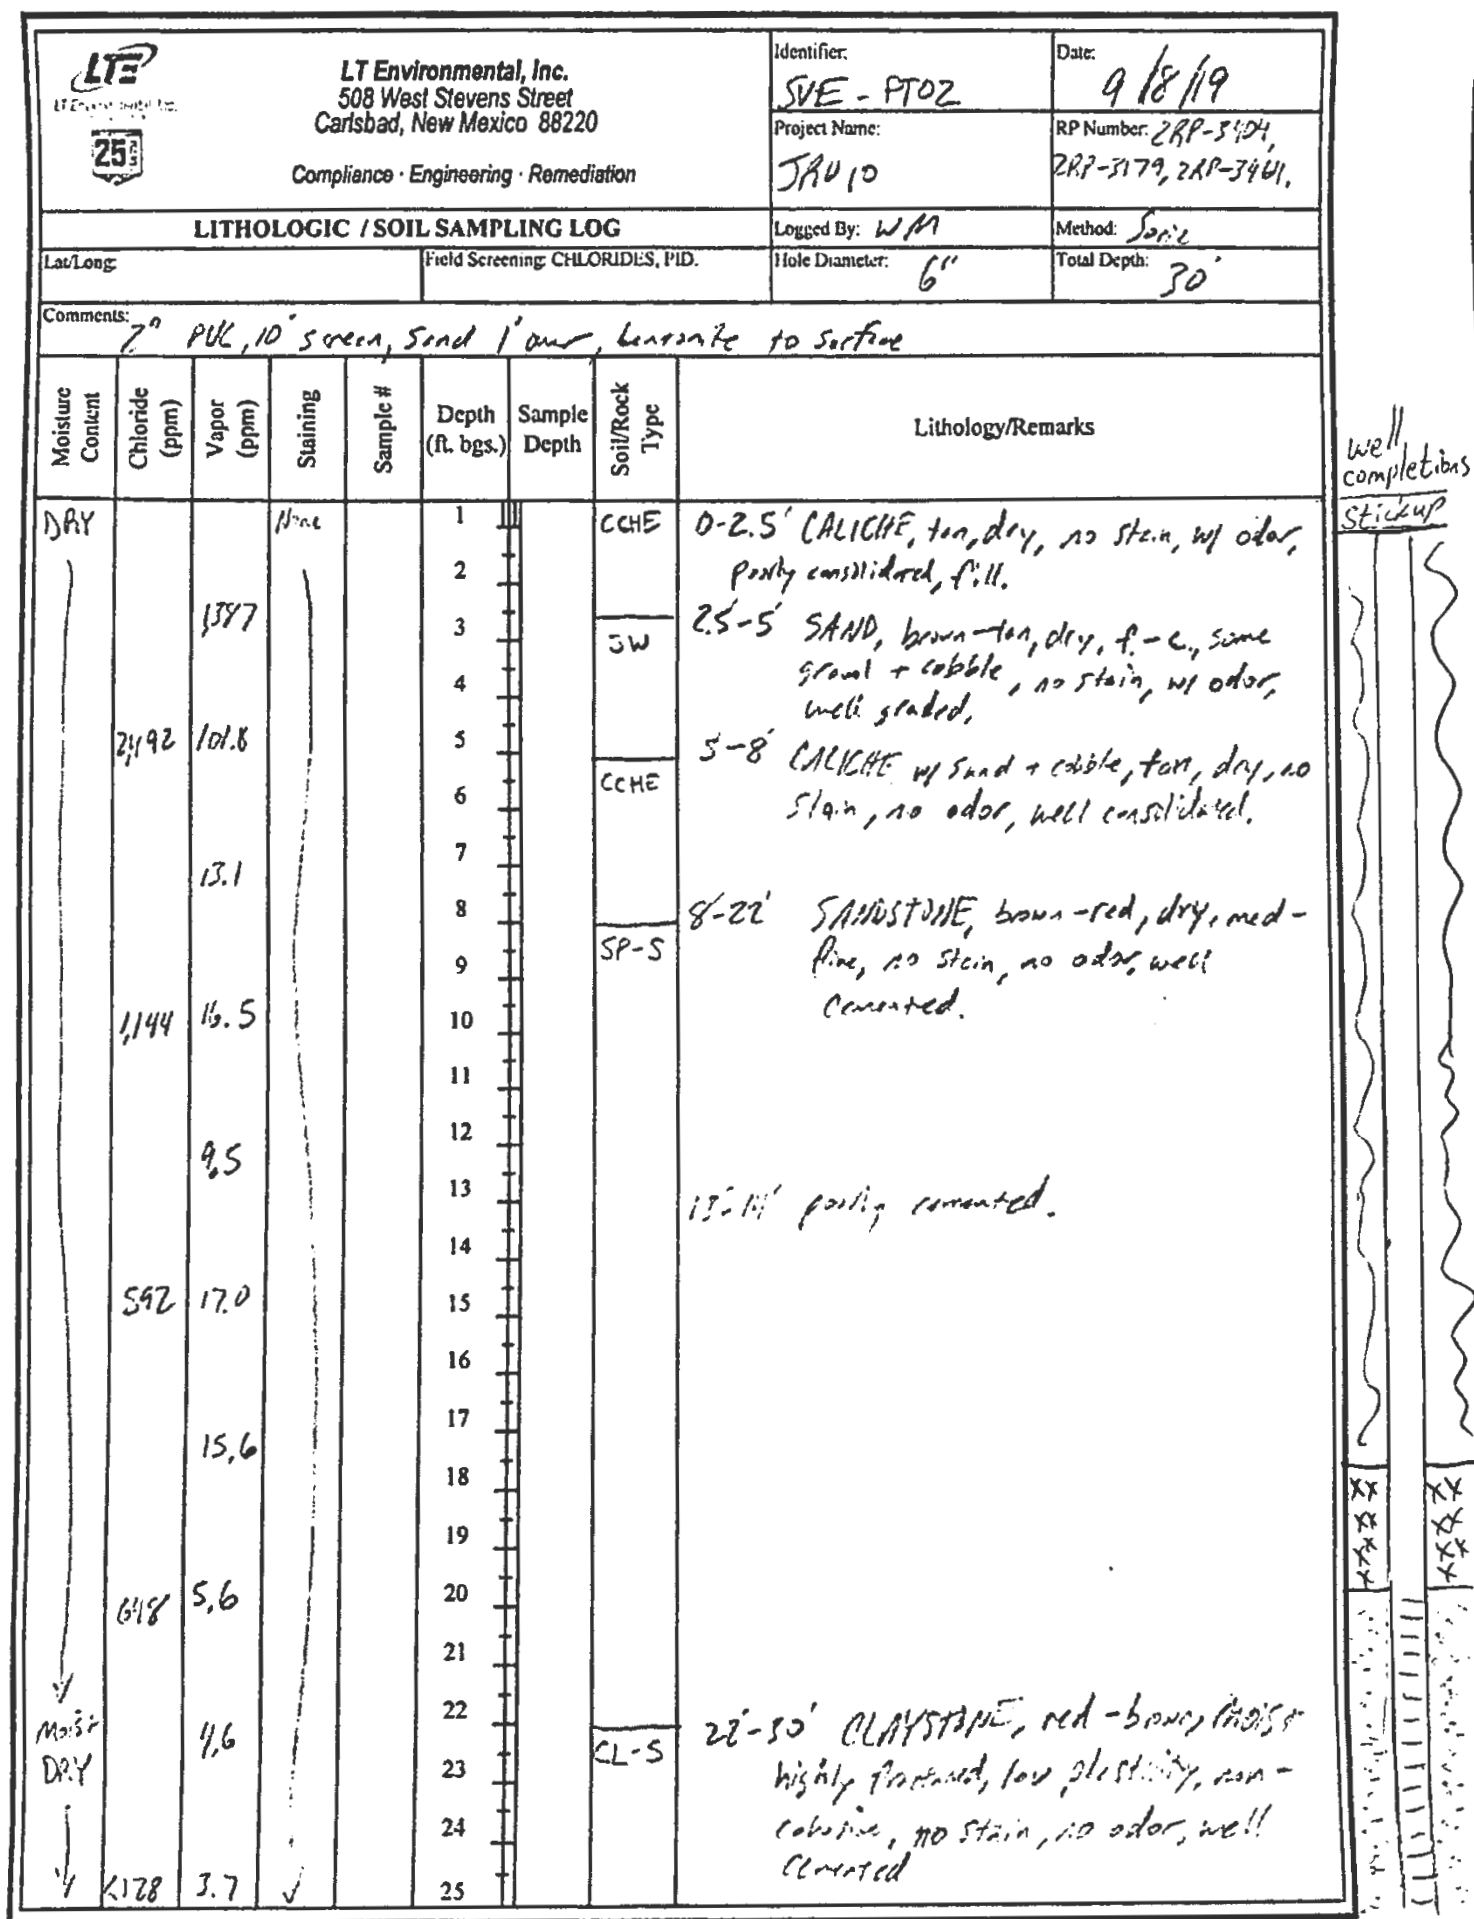 LTE
LT Environmental, Inc.
508 West Stevens Street
Carlsbad, New Mexico 88220
Compliance · Engineering · Remediation
Identifier: SVE-PT02
Date: 9/8/19
Project Name: JRU 10
RP Number: 2RP-3404,
2RP-3179, 2RP-3461.
LITHOLOGIC / SOIL SAMPLING LOG
Logged By: WM
Method: Sonic
Lat/Long:
Field Screening: CHLORIDES, PID.
Hole Diameter: 6"
Total Depth: 30'
Comments: 2" PVC, 10' screen, sand 1' over, bentonite to surface
Moisture Content
Chloride (ppm)
Vapor (ppm)
Staining
Sample #
Depth (ft. bgs.)
Sample Depth
Soil/Rock Type
Lithology/Remarks
well completions
stickup
DRY None 1 CCHE 0-2.5' CALICHE, tan, dry, no stain, w/ odor,
2 poorly consolidated, fill.
1,387 3 SW 2.5-5' SAND, brown-tan, dry, f.-c., some
4 gravel + cobble, no stain, w/ odor,
well graded,
101.8 5 5-8' CALICHE w/ sand + cobble, tan, dry, no
6 CCHE stain, no odor, well consolidated.
13.1 7
8 8-22' SANDSTONE, brown-red, dry, med-
9 SP-S fine, no stain, no odor, well
1,144 16.5 10 cemented.
11
9.5 12
13 poorly cemented.
14
592 17.0 15
16
17
15.6 18
19
648 5.6 20
21
22 22'-30' CLAYSTONE, red-brown, moist
Moist 4.6 CL-S
DRY 23 highly fractured, low plasticity, non-
24 cohesive, no stain, no odor, well
3.7 25 cemented